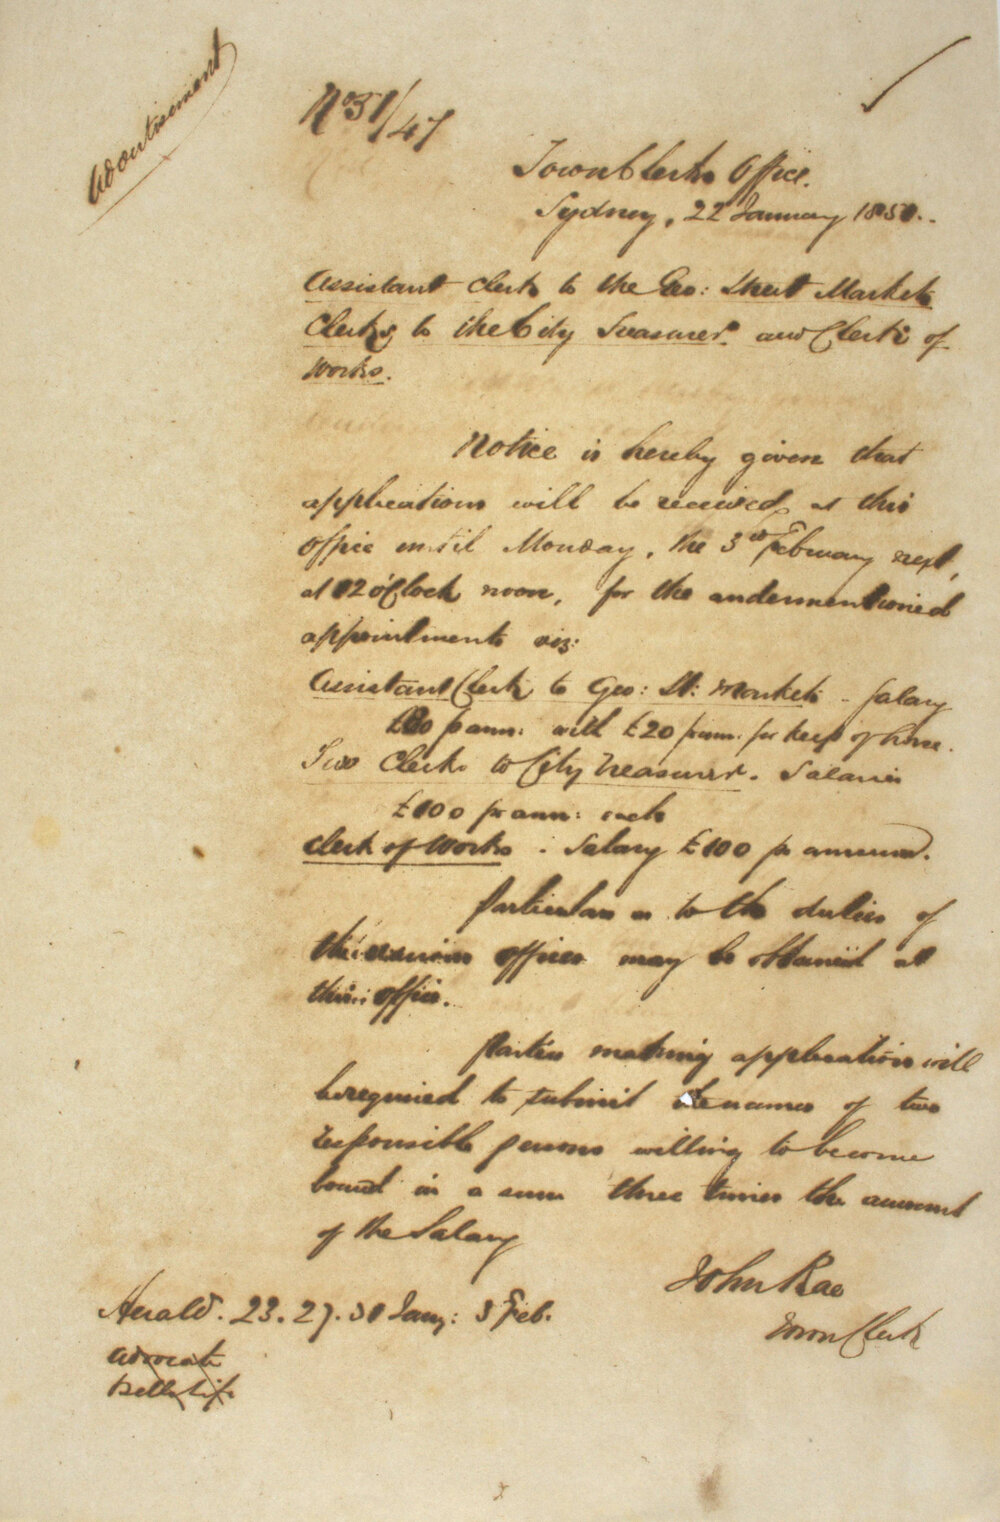 Advertisement
No 51/47
Town Clerks Office.
Sydney, 22 January 1851.
Assistant Clerk to the Geo: Street Markets
Clerks to the City Treasurer and Clerk of
Works.
Notice is hereby given that
applications will be received at this
Office until Monday, the 3rd February next,
at 12 o'Clock noon, for the undermentioned
appointments viz:
Assistant Clerk to Geo: St: Markets - Salary
pr ann: with £20 pr ann: for keep of horse.
Two Clerks to City Treasurer. Salaries
£100 pr ann: each
Clerk of Works. Salary £100 pr annum.
Particulars as to the duties of
the various offices may be obtained at
this office.
Parties making application will
be required to submit the names of two
responsible persons willing to become
bound in a sum three times the amount
of the Salary
John Rae
Town Clerk
Herald. 23. 27. 30 Jany: 3 Feb.
Advocate
Bells Life